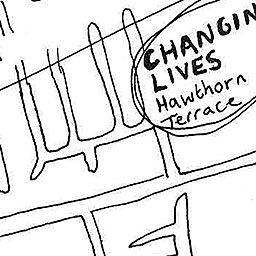 CHANGIN
LIVES
Hawthorn
Terrace